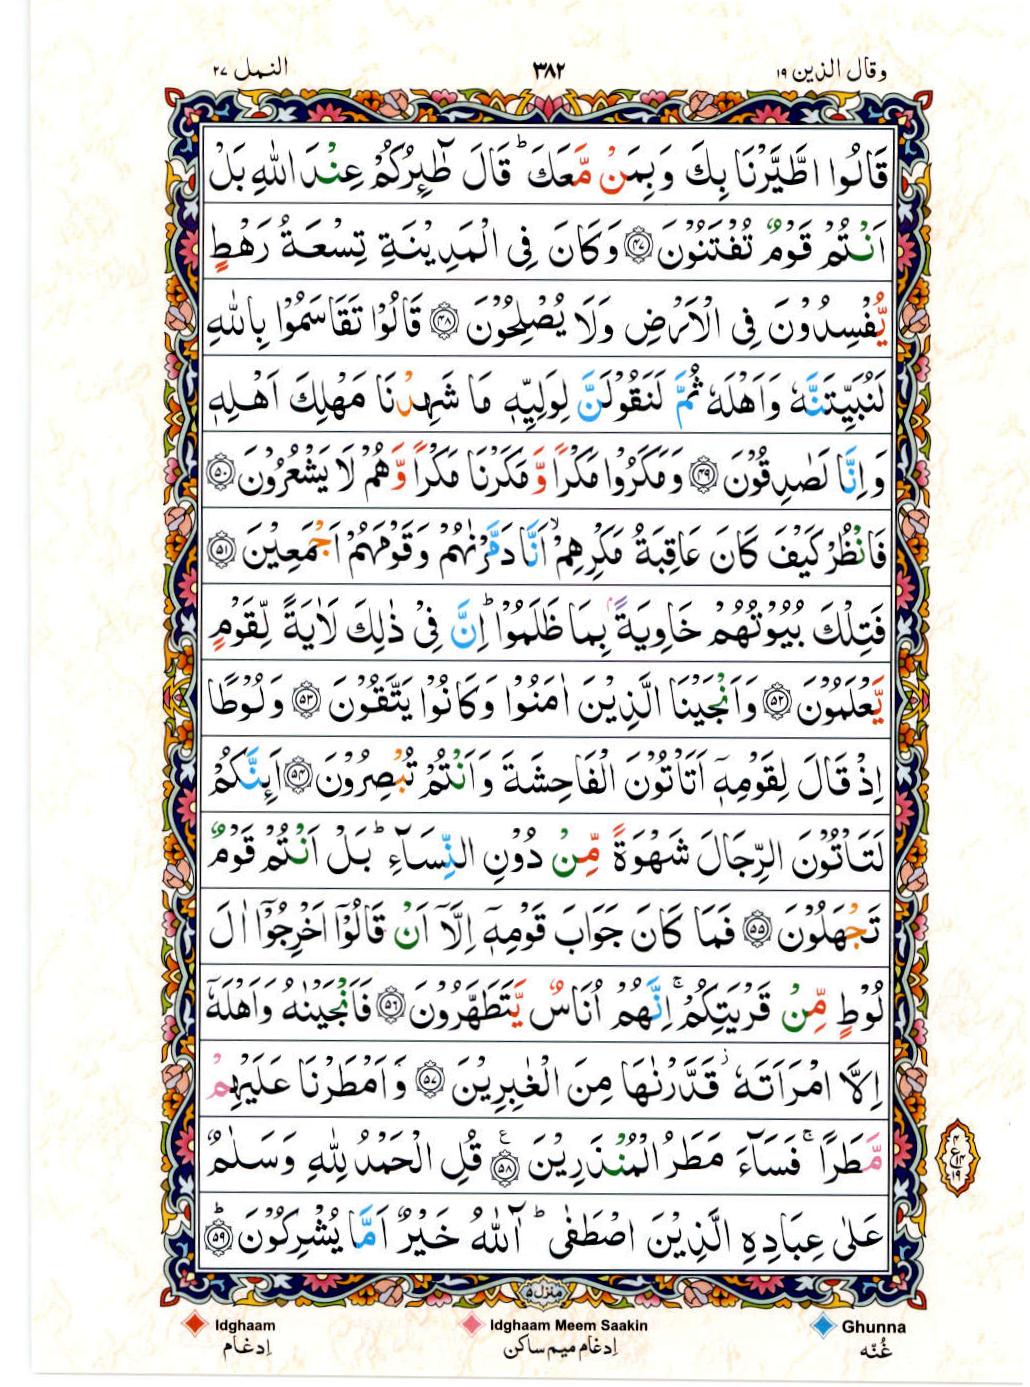 وقال الذين ١٩
٣٨٢
النمل ٢٧
قَالُوا اطَّيَّرْنَا بِكَ وَبِمَنْ مَّعَكَ ؕ قَالَ طٰٓئِرُكُمْ عِنْدَ اللّٰهِ بَلْ
اَنْتُمْ قَوْمٌ تُفْتَنُوْنَ ﴿۴۷﴾ وَكَانَ فِى الْمَدِيْنَةِ تِسْعَةُ رَهْطٍ
يُّفْسِدُوْنَ فِى الْاَرْضِ وَلَا يُصْلِحُوْنَ ﴿۴۸﴾ قَالُوْا تَقَاسَمُوْا بِاللّٰهِ
لَنُبَيِّتَنَّهٗ وَاَهْلَهٗ ثُمَّ لَنَقُوْلَنَّ لِوَلِيِّهٖ مَا شَهِدْنَا مَهْلِكَ اَهْلِهٖ
وَاِنَّا لَصٰدِقُوْنَ ﴿۴۹﴾ وَمَكَرُوْا مَكْرًا وَّمَكَرْنَا مَكْرًا وَّهُمْ لَا يَشْعُرُوْنَ ﴿۵۰﴾
فَانْظُرْ كَيْفَ كَانَ عَاقِبَةُ مَكْرِهِمْ ۙ اَنَّا دَمَّرْنٰهُمْ وَقَوْمَهُمْ اَجْمَعِيْنَ ﴿۵۱﴾
فَتِلْكَ بُيُوْتُهُمْ خَاوِيَةًۢ بِمَا ظَلَمُوْا ؕ اِنَّ فِىْ ذٰلِكَ لَاٰيَةً لِّقَوْمٍ
يَّعْلَمُوْنَ ﴿۵۲﴾ وَاَنْجَيْنَا الَّذِيْنَ اٰمَنُوْا وَكَانُوْا يَتَّقُوْنَ ﴿۵۳﴾ وَلُوْطًا
اِذْ قَالَ لِقَوْمِهٖۤ اَتَاْتُوْنَ الْفَاحِشَةَ وَاَنْتُمْ تُبْصِرُوْنَ ﴿۵۴﴾ اَئِنَّكُمْ
لَتَاْتُوْنَ الرِّجَالَ شَهْوَةً مِّنْ دُوْنِ النِّسَآءِ ؕ بَلْ اَنْتُمْ قَوْمٌ
تَجْهَلُوْنَ ﴿۵۵﴾ فَمَا كَانَ جَوَابَ قَوْمِهٖۤ اِلَّاۤ اَنْ قَالُوْۤا اَخْرِجُوْۤا اٰلَ
لُوْطٍ مِّنْ قَرْيَتِكُمْ ۚ اِنَّهُمْ اُنَاسٌ يَّتَطَهَّرُوْنَ ﴿۵۶﴾ فَاَنْجَيْنٰهُ وَاَهْلَهٗۤ
اِلَّا امْرَاَتَهٗ ؗ قَدَّرْنٰهَا مِنَ الْغٰبِرِيْنَ ﴿۵۷﴾ وَاَمْطَرْنَا عَلَيْهِمْ
مَّطَرًا ۚ فَسَآءَ مَطَرُ الْمُنْذَرِيْنَ ﴿۵۸﴾ قُلِ الْحَمْدُ لِلّٰهِ وَسَلٰمٌ
عَلٰى عِبَادِهِ الَّذِيْنَ اصْطَفٰى ؕ آٰللّٰهُ خَيْرٌ اَمَّا يُشْرِكُوْنَ ﴿۵۹﴾ؕ
منزل ۵
Idghaam
Idghaam Meem Saakin
Ghunna
اِدغام
اِدغام میم ساکن
غُنّه